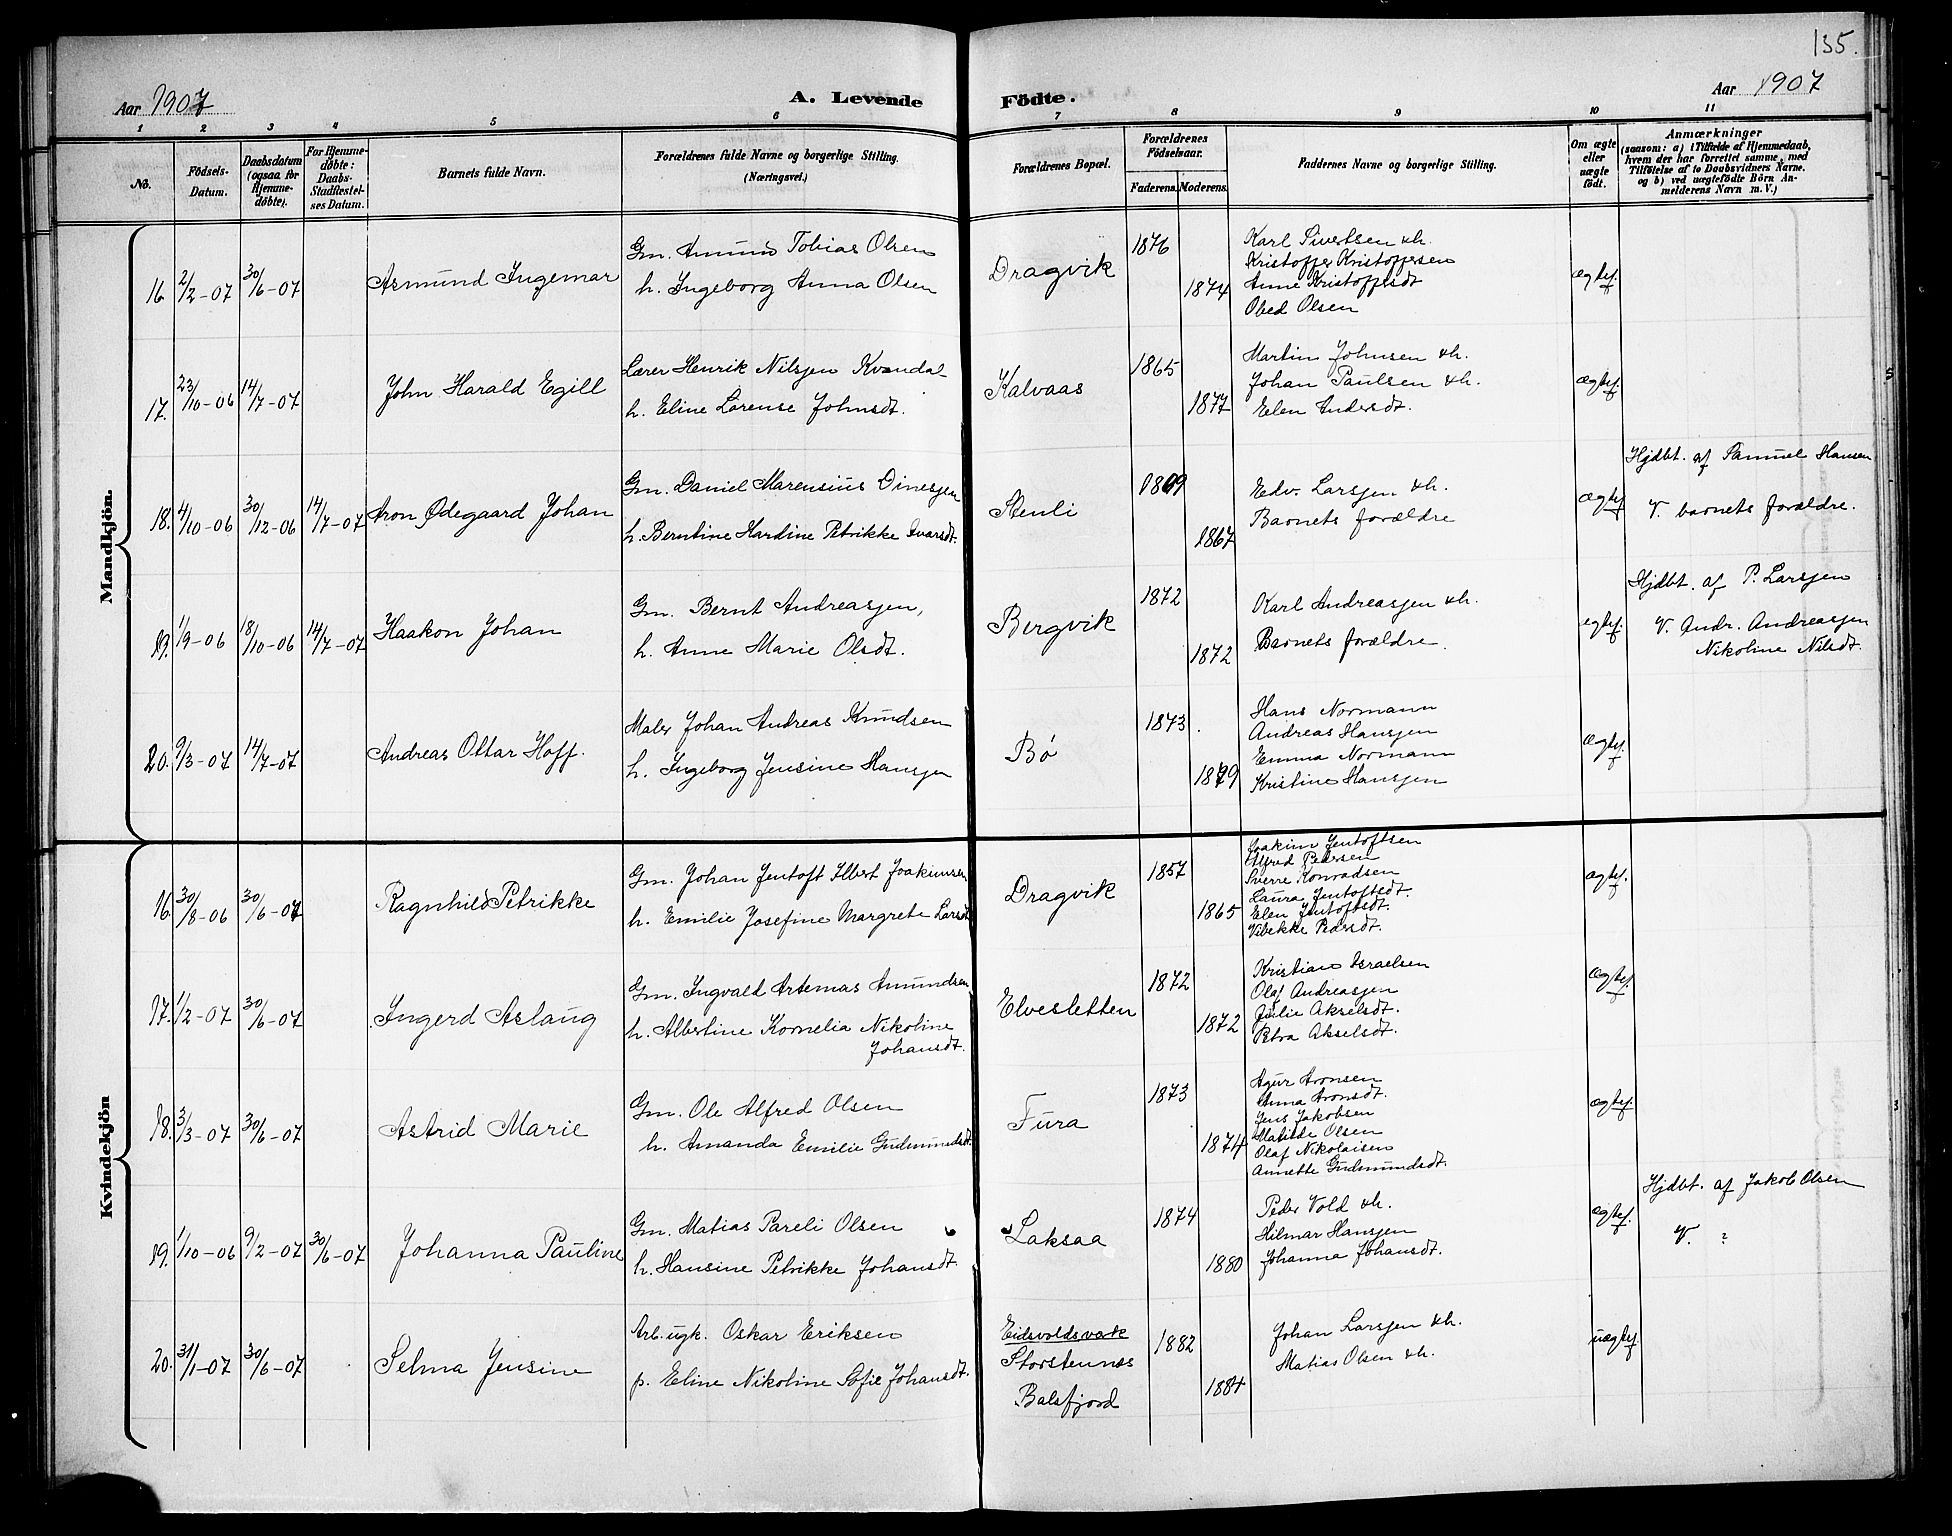 135.
Aar 1907
A. Levende Födte.
Aar 1907
1 2 3 4 5 6 7 8 9 10 11
No.
Födsels-Datum.
Daabsdatum (ogsaa for Hjemme-döbte).
For Hjemme-döbte: Daabs-Stadfæstel-ses Datum.
Barnets fulde Navn.
Forældrenes fulde Navne og borgerlige Stilling. (Næringsvei.)
Forældrenes Bopæl.
Forældrenes Födselsaar.
Faderens. Moderens.
Faddernes Navne og borgerlige Stilling.
Om ægte eller uægte födt.
Anmærkninger
(saasom: a) i Tilfælde af Hjemmedaab, hvem der har forrettet samme, med Tilföielse af to Daabsvidners Navne. og b) ved uægtefödte Börn An-melderens Navn m. V.)
Mandkjön.
16 2/2-07 30/6-07 Asmund Ingemar
Gm. Amund Tobias Olsen
h. Ingeborg Anna Olsen
Dragvik 1876 1874
Karl Sivertsen &h.
Kristoffer Kristoffersen
Anne Kristoffersdt
Obed Olsen
ægtef.
17. 23/10-06 14/7-07 John Harald Egill
Lærer Henrik Nilsjen Kvandal
h. Eline Lorense Johnsdt.
Kalvaas 1865 1877
Martin Johnsen &h.
Johan Paulsen &h.
Elen Andersdt.
ægtef
18. 4/10-06 30/12-06 14/7-07 Aron Ødegaard Johan
Gm. Daniel Marensius Dinesjen
h. Berntine Hardine Petrikke Ivarsdt.
Stenli 1869 1867
Edv. Larsjen &h.
Barnets forældre
ægtef
Hjdbt. af Samuel Hansen
V. barnets forældre.
19. 1/9-06 18/10-06 14/7-07 Haakon Johan
Gm. Bernt Andreasjen,
h. Anne Marie Olsdt.
Bergvik 1872 1872
Karl Andreasjen &h.
Barnets forældre.
ægtef.
Hjdbt. af P. Larsjen
V. Andr. Andreasjen
Nikoline Nilsdt.
20. 9/3-07 14/7-07 Andreas Ottar Hoff.
Maler Johan Andreas Knudsen
h. Ingeborg Jensine Hansjen
Bø 1873 1879
Hans Normann
Andreas Hansjen
Emma Normann
Kristine Hansjen
ægtef.
Kvindekjön
16. 30/8-06 30/6-07 Ragnhild Petrikke
Gm. Johan Jentoft Albert Joakimsen
h. Emilie Josefine Margrete Larsdt
Dragvik 1857 1865
Joakim Jentoftsen
Alfred Pedersen
Sverre Konradsen
Laura Jentoftsdt.
Elen Jentoftsdt.
Vibekke Pedersdt.
ægtef.
17. 1/2-07 30/6-07 Ingerd Aslaug
Gm. Ingvald Artemas Amundsen
h. Albertine Kornelia Nikoline
Johansdt.
Elvesletten 1872 1872
Kristian Israelsen
Olaf Andreasjen
Julie Akselsdt.
Petra Akselsdt.
ægtef.
18. 3/3-07 30/6-07 Astrid Marie
Gm. Ole Alfred Olsen
h. Amanda Emilie Gudmundsdt.
Fura 1873 1874
Agur Aronsen
Anna Aronsdt.
Jens Jakobsen
Matilde Olsen
Olaf Nikolaisen
Annette Gudmundsdt.
ægtef.
19. 1/10-06 9/2-07 30/6-07 Johanna Pauline
Gm. Matias Pareli Olsen
h. Hansine Petrikke Johansdt.
Laksaa 1874 1880
Peder Vold &h.
Hilmar Hansjen
Johanna Johansdt.
ægtef.
Hjdbt. af Jakob Olsen
V. ?
20. 31/1-07 30/6-07 Selma Jensine
Arb. ugk. Oskar Eriksen
p. Eline Nikoline Sofie Johansdt.
Eidsvoldsværk
Storstennes
Balsfjord
1882 1884
Johan Larsjen &h.
Matias Olsen &h.
uægtef